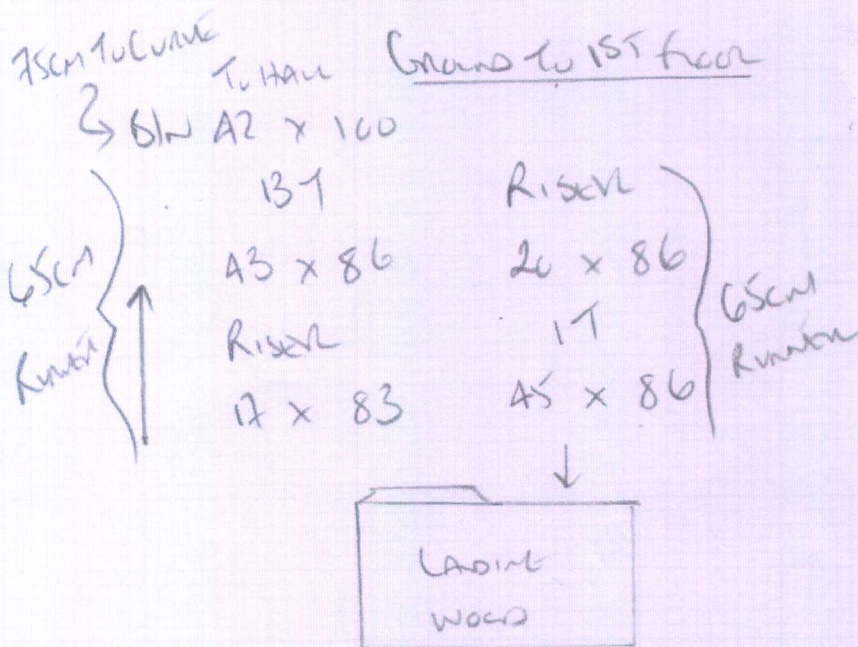 75cm To Curve
To Hall
Ground To 1st floor
B/N 42 x 100
13T
43 x 86
Riser
17 x 83
65cm
Runner
Riser
20 x 86
1T
45 x 86
65cm
Runner
Landing
Wood